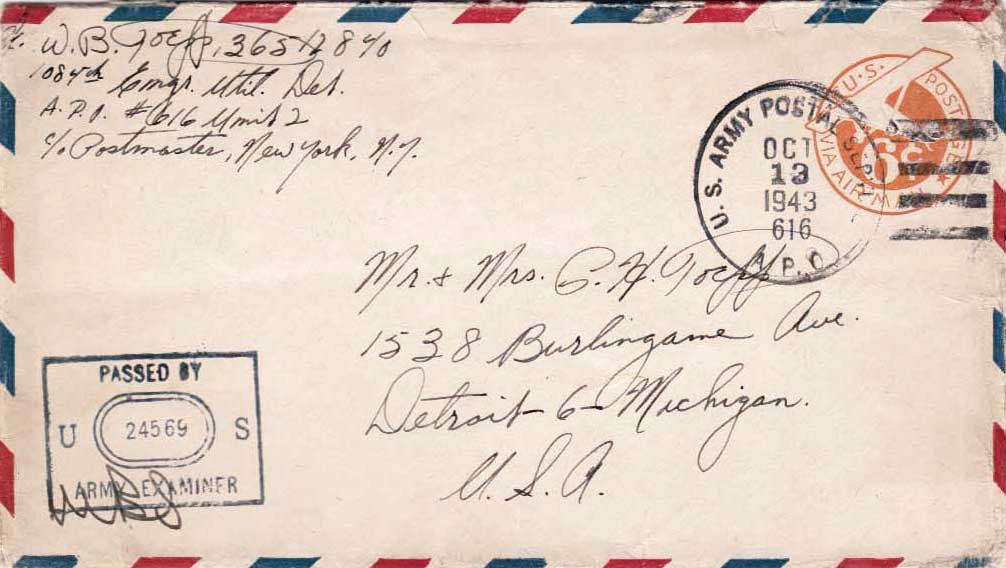 W. B. Toepp, 36517840
1084th Engr. Util. Det.
A.P.O. #616 Unit 2
c/o Postmaster, New York, N.Y.
U.S. POSTAGE
6¢
VIA AIR MAIL
U. S. ARMY POSTAL
OCT
13
1943
616
A. P. O.
Mr. & Mrs. C. H. Toepp
1538 Burlingame Ave.
Detroit - 6 - Michigan.
U. S. A.
PASSED BY
U 24569 S
ARMY EXAMINER